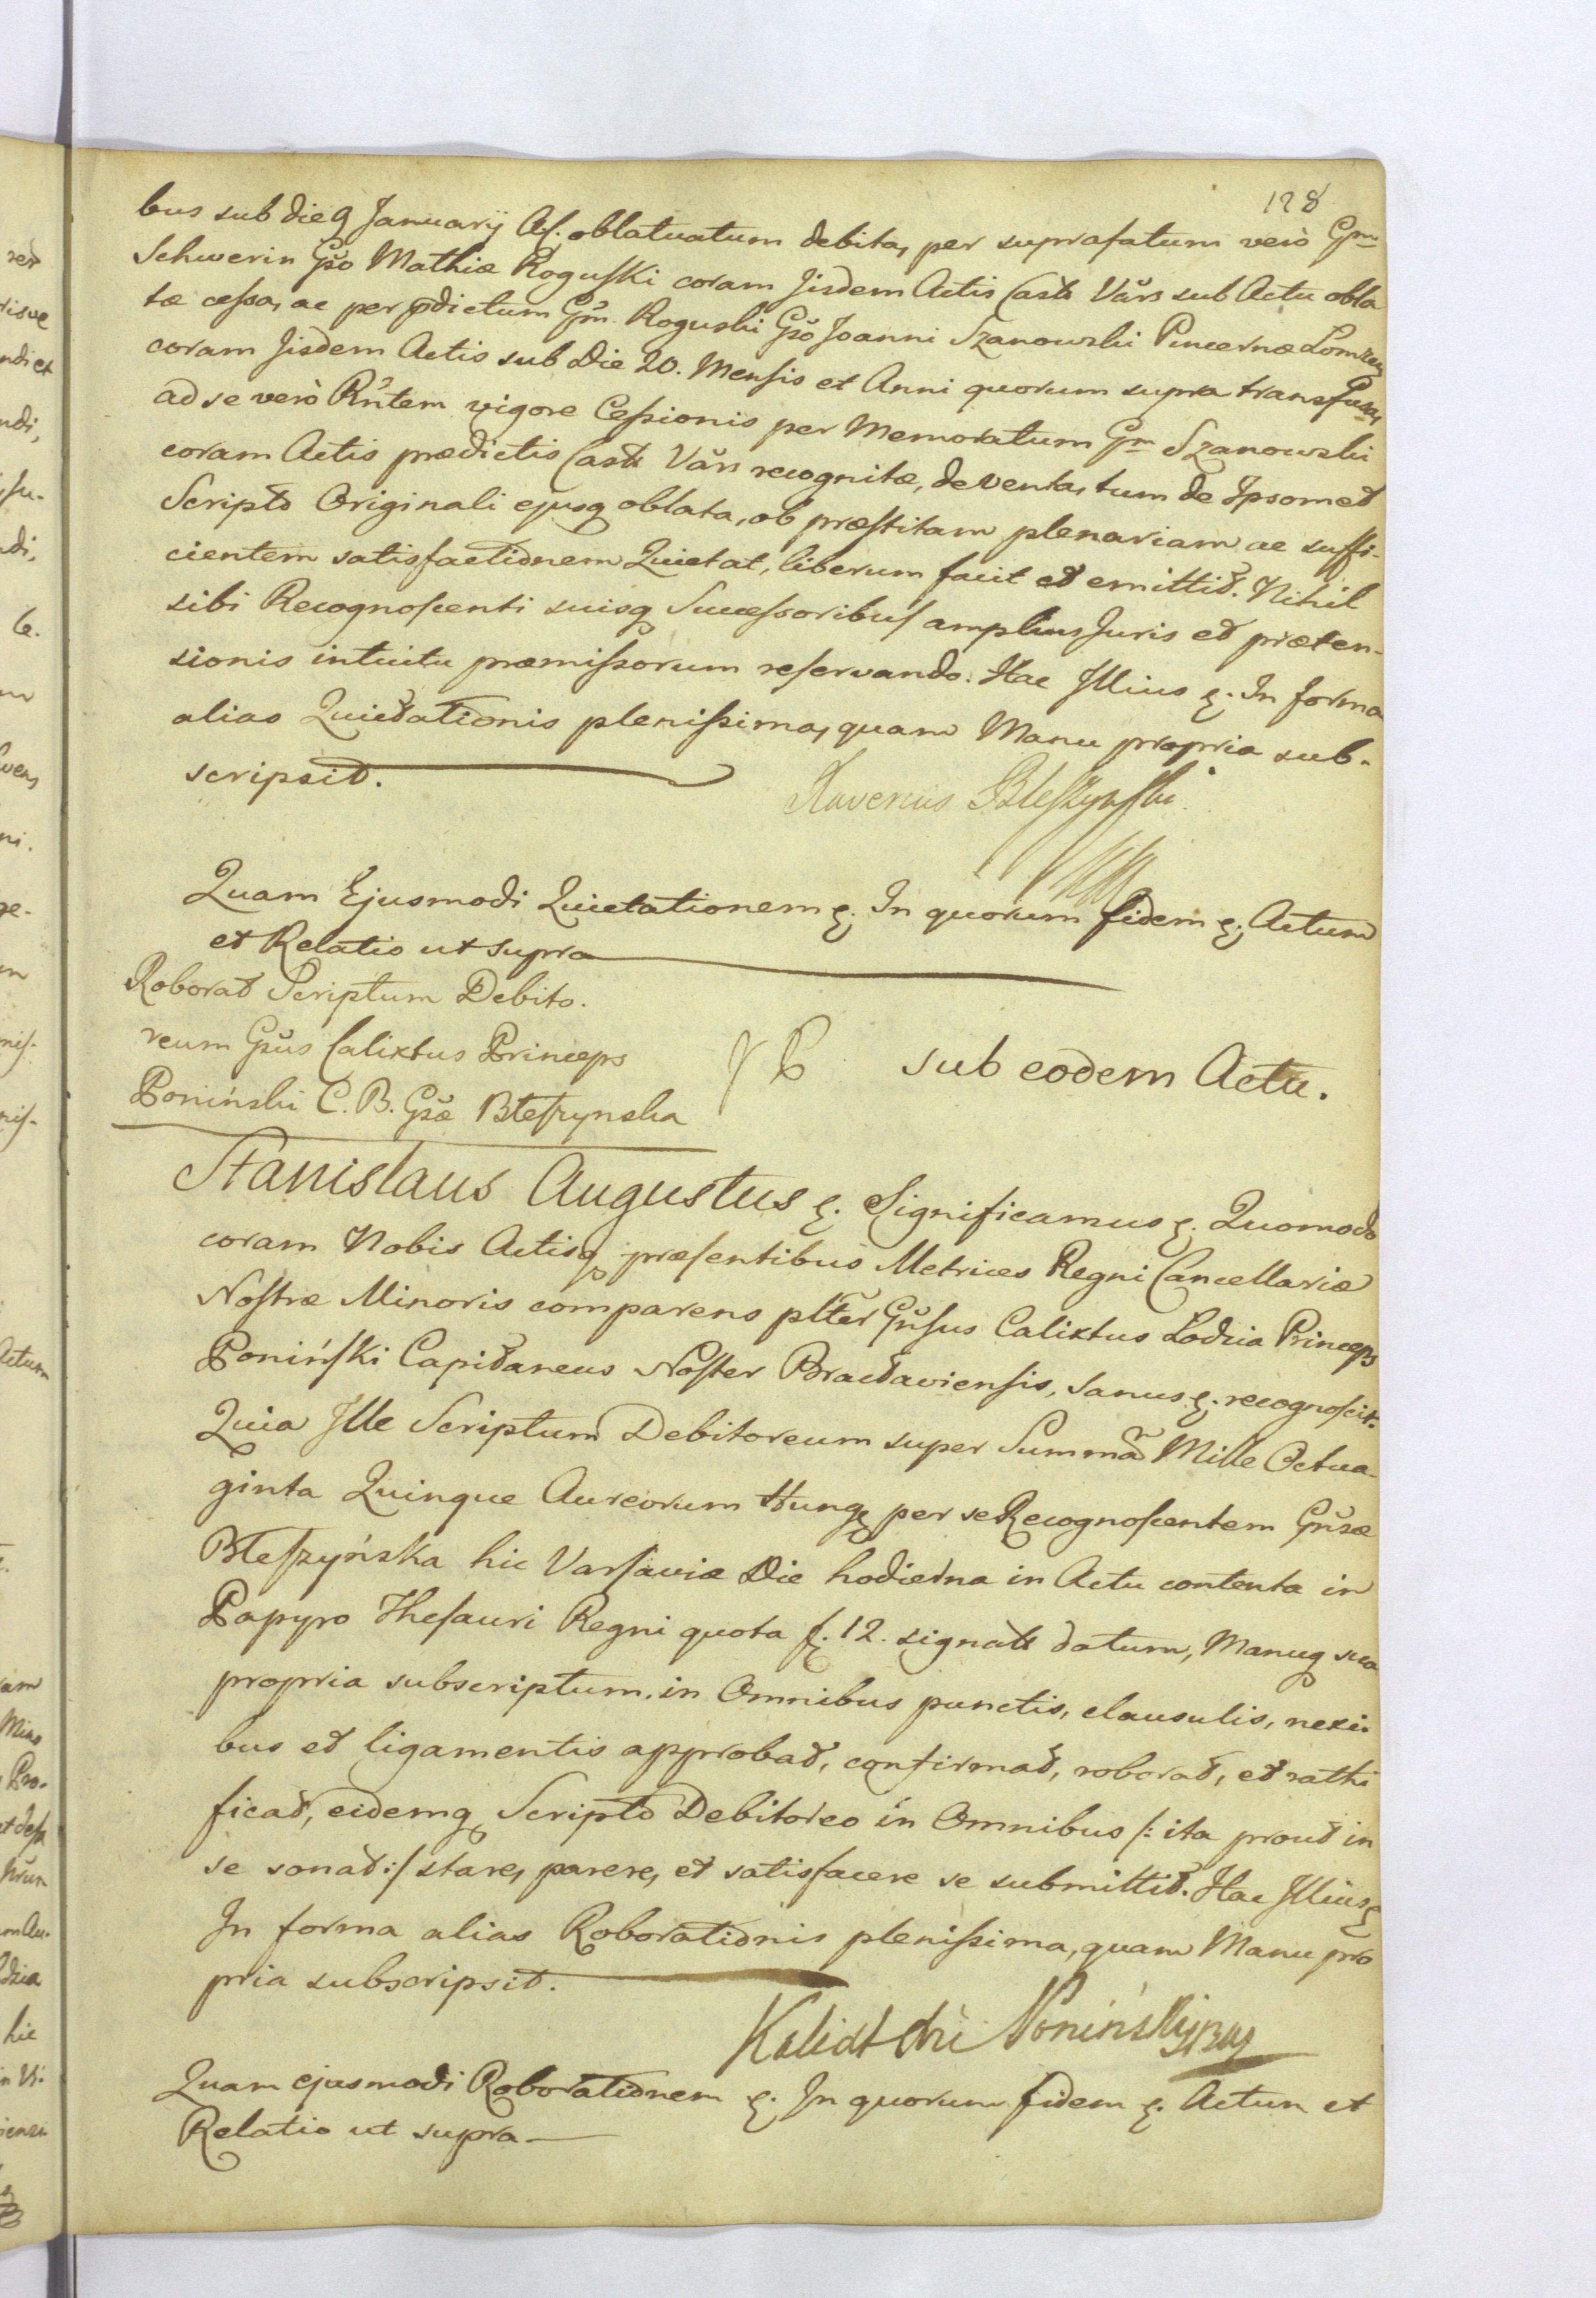 128
bus sub die 9 Januarij A f. oblatuatum debita, per suprafatum verò Gm
Schwerin Gso Mathiæ Roguski coram Jisdem Actis Castr Vars sub Actu obla
tæ cessa, ac per pdictum Gm Roguski Gso Joanni Szanowski Pincernæ Lomzen
coram Jisdem Actis sub Die 20. Mensis et Anni quorum supra transfusa,
ad se verò Rntem vigore Cessionis per Memoratum Gm Szanowski
coram Actis prædictis Castr Vars recognitæ, deventa, tum de Ipsomet
Scripto Originali ejusq oblata, ob præstitam plenariam ac suffi-
cientem satisfactionem Quietat, liberum facit et emittit. Nihil
sibi Recognoscenti suisq Successoribus amplius Juris et præten-
sionis intuitu præmissorum reservando. Hac Illius &. In forma
alias Quietationis plenissima, quam Manu propria sub-
scripsit.
Xaverius Bleszynski
Quam Ejusmodi Quietationem &. In quorum fidem &. Actum
et Relatio ut supra
Roborat Scriptum Debito-
reum Gsus Calixtus Princeps
Poniński C. B. Gsæ Błeszynska
sub eodem Actu.
Stanislaus Augustus &. Significamus &. Quomodo
coram Nobis Actisq præsentibus Metrices Regni Cancellariæ
Nostræ Minoris comparens plter Gnsus Calixtus Lodzia Princeps
Poniński Capitaneus Noster Braclaviensis, sanus &. recognoscit.
Quia Ille Scriptum Debitoreum super Summa Mille Octua-
ginta Quinque Aureorum Hung per se Recognoscentem Gnsæ
Błeszyńska hic Varsaviæ Die hodierna in Actu contenta in
Papyro Thesauri Regni quota f. 12. signatt datum, Manuq sua
propria subscriptum, in Omnibus punctis, clausulis, nexi-
bus et ligamentis approbat, confirmat, roborat, et rathi
ficat, eidemq Scripto Debitoreo in Omnibus /: ita prout in
se sonat :/ stare, parere, et satisfacere se submittit. Hac Illius &
In forma alias Roborationis plenissima, quam Manu pro
pria subscripsit.
Kalixt Poniński
Quam ejusmodi Roborationem &. In quorum fidem &. Actum et
Relatio ut supra